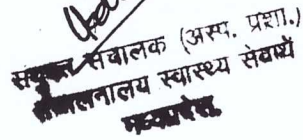 संयुक्त संचालक (अस्प. प्रशा.)
संचालनालय स्वास्थ्य सेवायें
मध्यप्रदेश